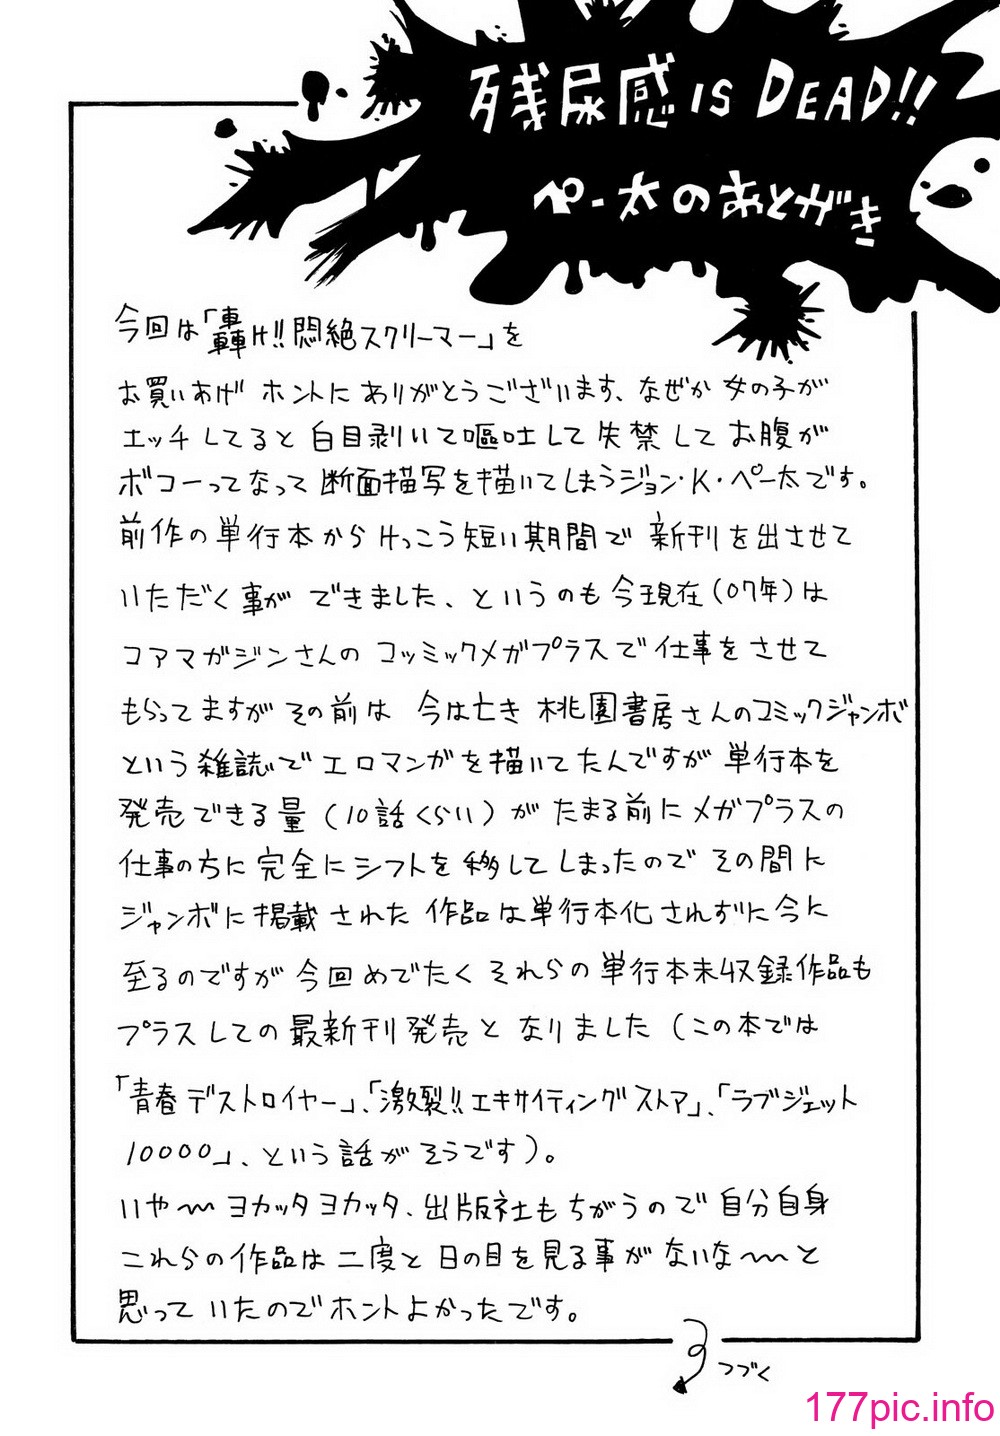 残尿感 IS DEAD!!
ペー太のあとがき
今回は「轟け!!悶絶スクリーマー」を
お買いあげ ホントにありがとうございます、なぜか女の子が
エッチしてると白目剥いて嘔吐して失禁してお腹が
ボコーってなって断面描写を描いてしまうジョン・K・ペー太です。
前作の単行本からけっこう短い期間で新刊を出させて
いただく事ができました、というのも今現在(07年)は
コアマガジンさんのコッミックメガプラスで仕事をさせて
もらってますがその前は 今は亡き桃園書房さんのコミックジャンボ
という雑誌でエロマンガを描いてたんですが単行本を
発売できる量(10話くらい)がたまる前にメガプラスの
仕事の方に完全にシフトを移してしまったのでその間に
ジャンボに掲載された作品は単行本化されずに今に
至るのですが今回めでたくそれらの単行本未収録作品も
プラスしての最新刊発売となりました(この本では
「青春デストロイヤー」、「激裂!!エキサイティングストア」、「ラブジェット
10000」、という話がそうです)。
いや〜ヨカッタヨカッタ、出版社もちがうので自分自身
これらの作品は二度と日の目を見る事がないな〜と
思っていたのでホントよかったです。
つづく
177pic.info